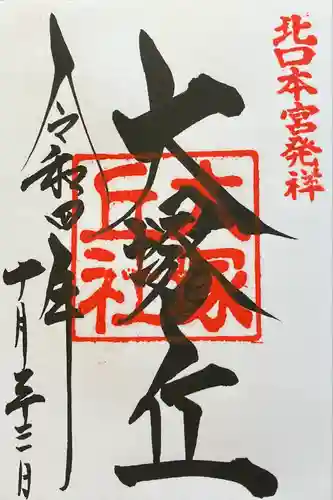 北口本宮発祥
大塚丘
大塚
丘社
令和四年
十月二十二日